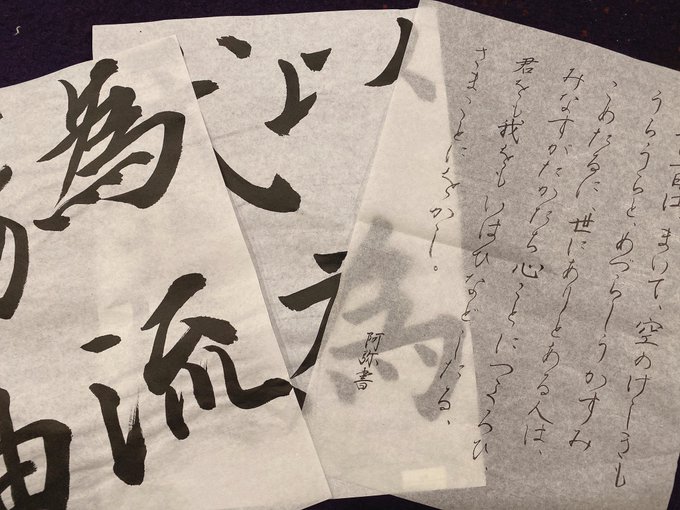 一日は まいて、空のけしきも
うらうらと、めづらしうかすみ
こめたるに、世にありとある人は、
みなすがたかたち心ことにつくろひ、
君をも我をもいはひなどしたる、
さまことにをかし。
阿弥書
為
為流